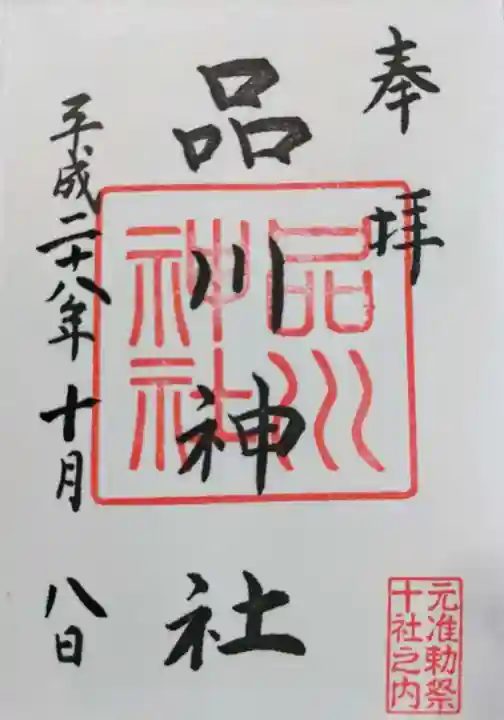 奉拝
品川神社
平成二十八年十月八日
品川
神社
元准勅祭
十社之内